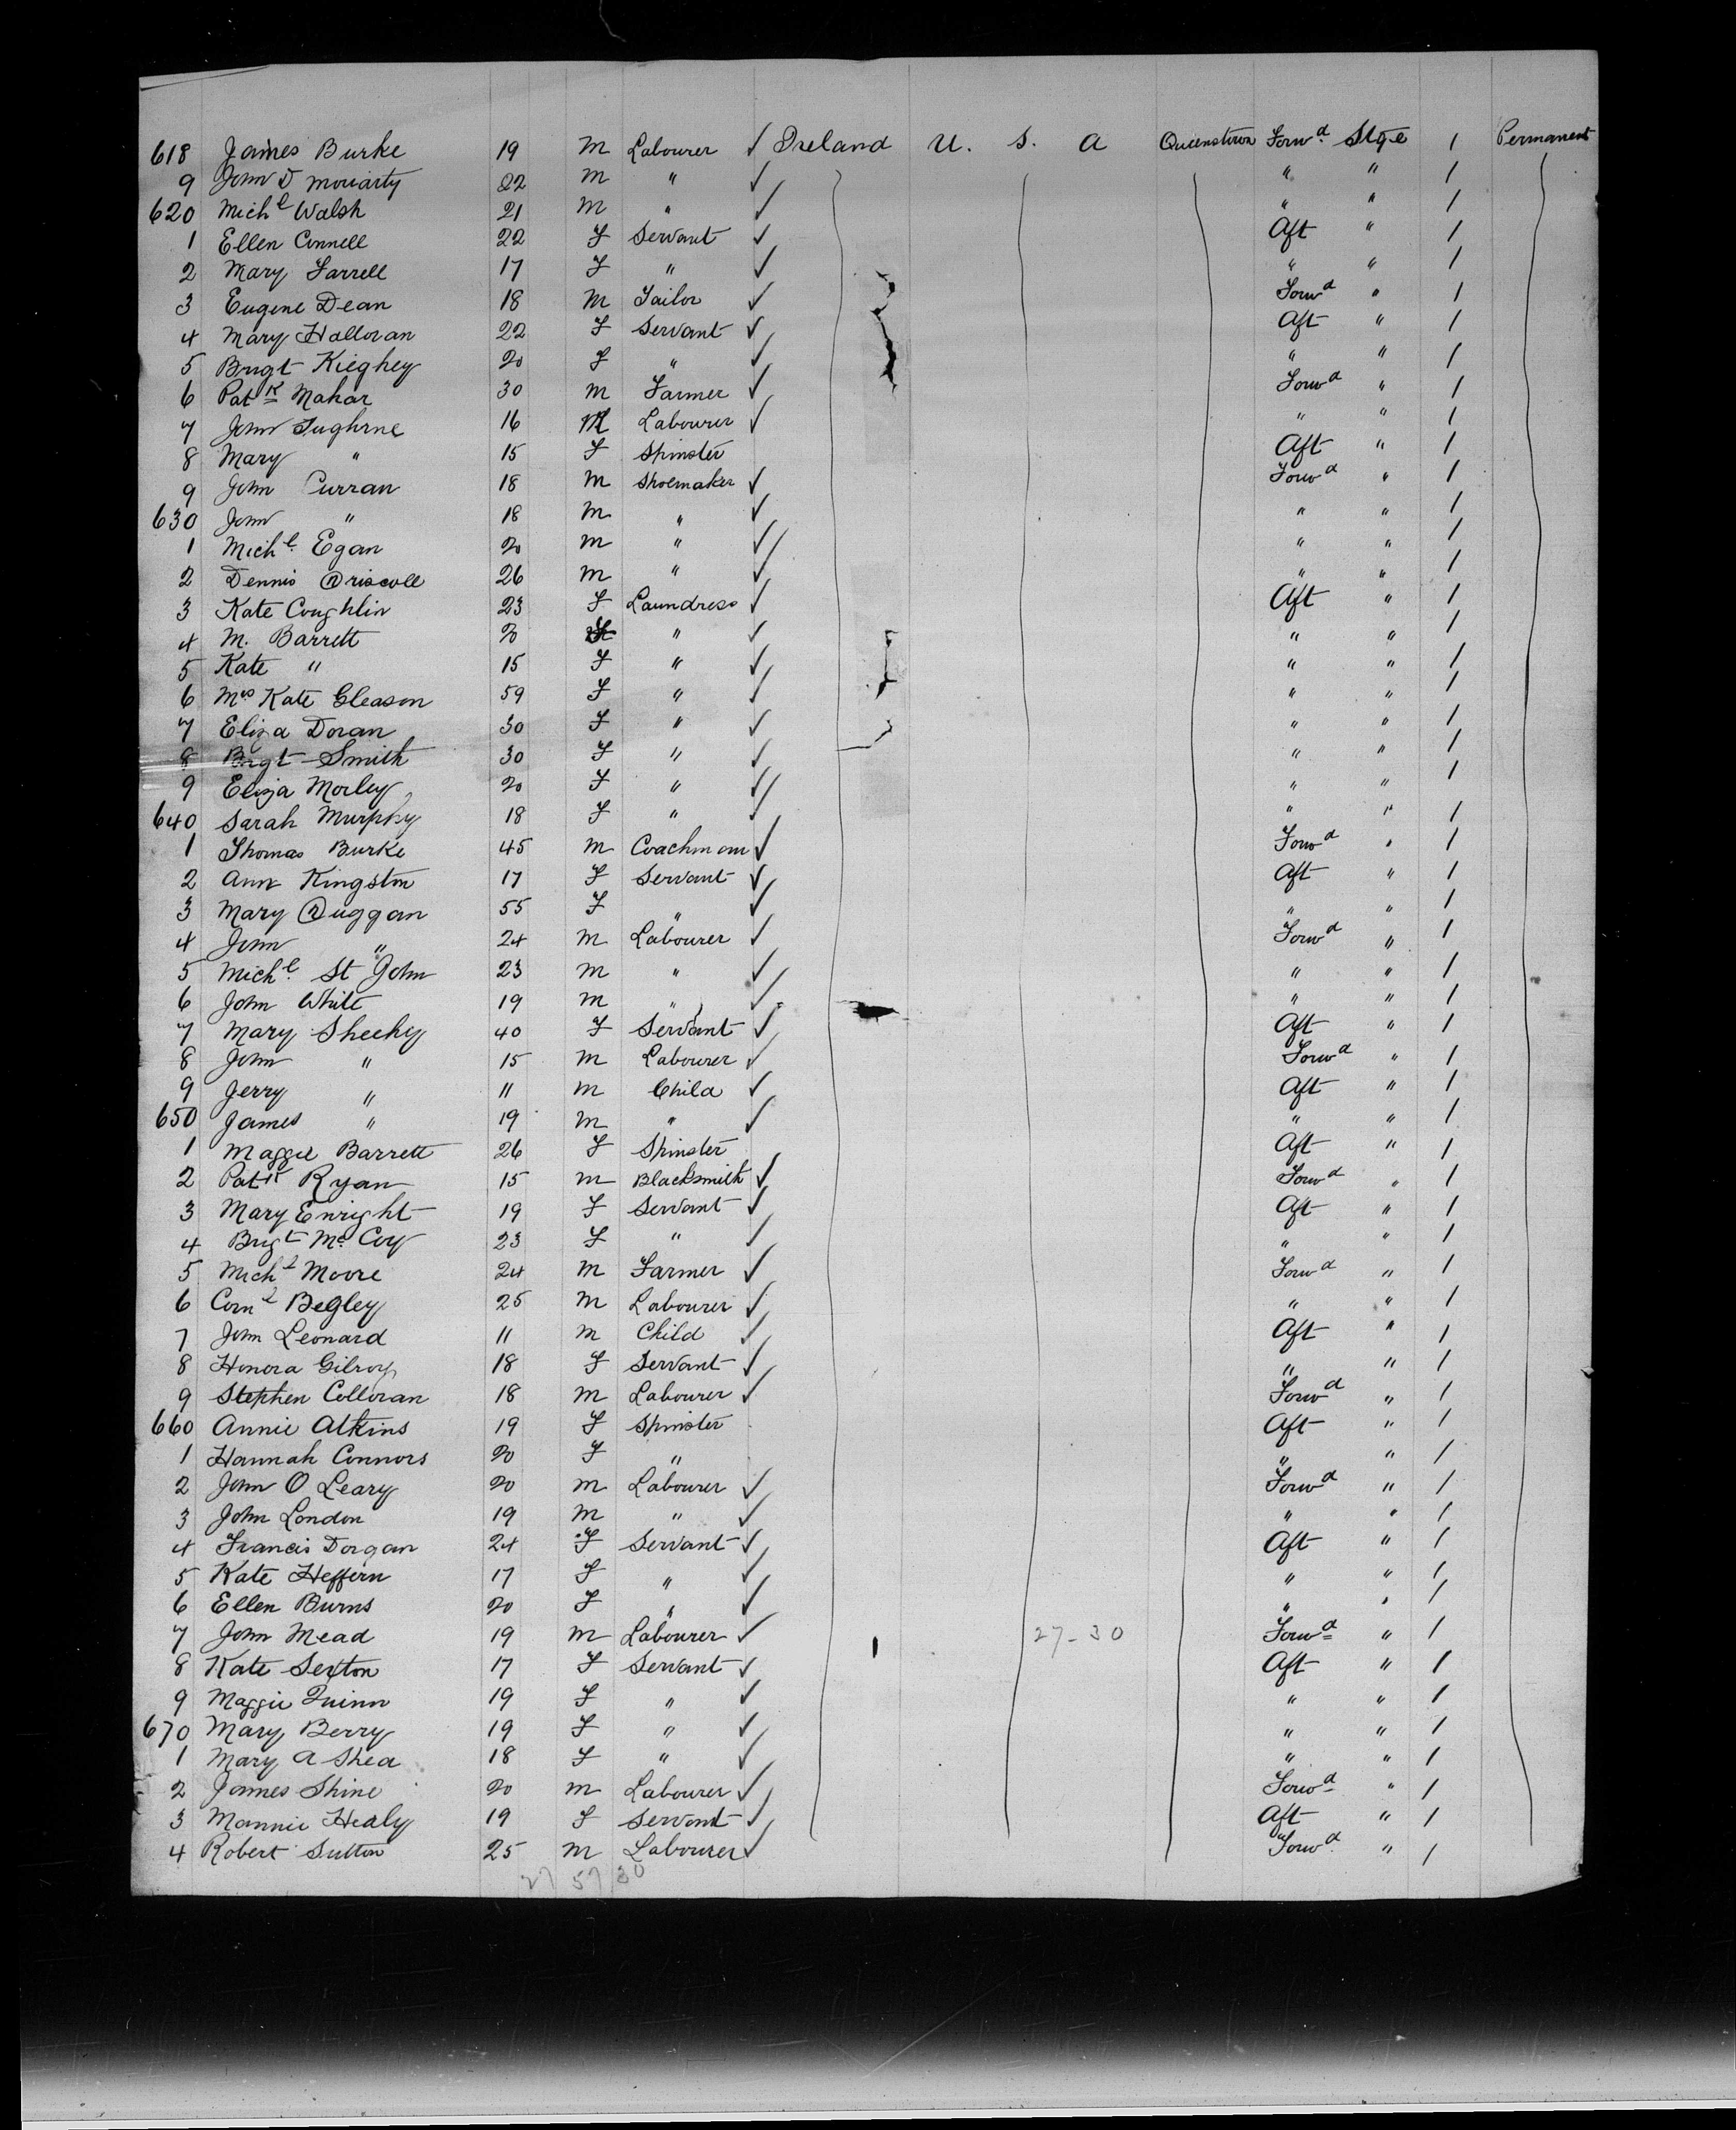 618 James Burke 19 M Labourer ✓ Ireland U. S. A Queenstown Forwd. Stge 1 Permanent
9 John D Moriarty 22 M " ✓ " " 1
620 Michl Walsh 21 M " ✓ " " 1
1 Ellen Connell 22 F Servant ✓ Aft " 1
2 Mary Farrell 17 F " ✓ " " 1
3 Eugene Dean 18 M Tailor ✓ Forwd " 1
4 Mary Halloran 22 F Servant ✓ Aft " 1
5 Brigt Kieghey 20 F " ✓ " " 1
6 Patk Mahar 30 M Farmer ✓ Forwd " 1
7 John 16 M Labourer ✓ " " 1
8 Mary " 15 F Spinster Aft " 1
9 John Curran 18 M Shoemaker ✓ Forwd " 1
630 John " 18 M " ✓ " " 1
1 Michl. Egan 20 M " ✓ " " 1
2 Dennis Driscoll 26 M " ✓ " " 1
3 Kate Coughlin 23 F Laundress ✓ Aft " 1
4 M. Barrett 20 F " ✓ " " 1
5 Kate " 15 F " ✓ " " 1
6 Mrs Kate Gleason 59 F " ✓ " " 1
7 Eliza Doran 30 F " ✓ " " 1
8 Brgt Smith 30 F " ✓ " " 1
9 Eliza Morley 20 F " ✓ " " 1
640 Sarah Murphy 18 F " ✓ " " 1
1 Thomas Burke 45 M Coachman ✓ Forwd " 1
2 Ann Kingston 17 F Servant ✓ Aft " 1
3 Mary Duggan 55 F " ✓ " " 1
4 John " 24 M Labourer ✓ Forwd " 1
5 Michl. St John 23 M " ✓ " " 1
6 John White 19 M " ✓ " " 1
7 Mary Sheehy 40 F Servant ✓ Aft " 1
8 John " 15 M Labourer ✓ Forwd " 1
9 Jerry " 11 M Child ✓ Aft " 1
650 James " 19 M " ✓ " " 1
1 Maggie Barrett 26 F Spinster Aft " 1
2 Patk Ryan 15 M Blacksmith ✓ Forwd " 1
3 Mary Enright 19 F Servant ✓ Aft " 1
4 Brigt McCoy 23 F " ✓ " " 1
5 Michl Moore 24 M Farmer ✓ Forwd " 1
6 Cornl Begley 25 M Labourer ✓ " " 1
7 John Leonard 11 M Child ✓ Aft " 1
8 Honora Gilroy 18 F Servant ✓ " " 1
9 Stephen Colloran 18 M Labourer ✓ Forwd " 1
660 Annie Atkins 19 F Spinster Aft " 1
1 Hannah Connors 20 F " " " 1
2 John O Leary 20 M Labourer ✓ Forwd " 1
3 John London 19 M " ✓ " " 1
4 Francis Dorgan 24 F Servant ✓ Aft " 1
5 Kate Heffern 17 F " ✓ " " 1
6 Ellen Burns 20 F " ✓ " " 1
7 John Mead 19 M Labourer ✓ 27-30 Forwd " 1
8 Kate Sexton 17 F Servant ✓ Aft " 1
9 Maggie Quinn 19 F " ✓ " " 1
670 Mary Berry 19 F " ✓ " " 1
1 Mary A Shea 18 F " ✓ " " 1
2 James Shine 20 M Labourer ✓ Forwd " 1
3 Mannie Healy 19 F Servant ✓ Aft " 1
4 Robert Sutton 25 M Labourer ✓ Forwd " 1
27 57 30